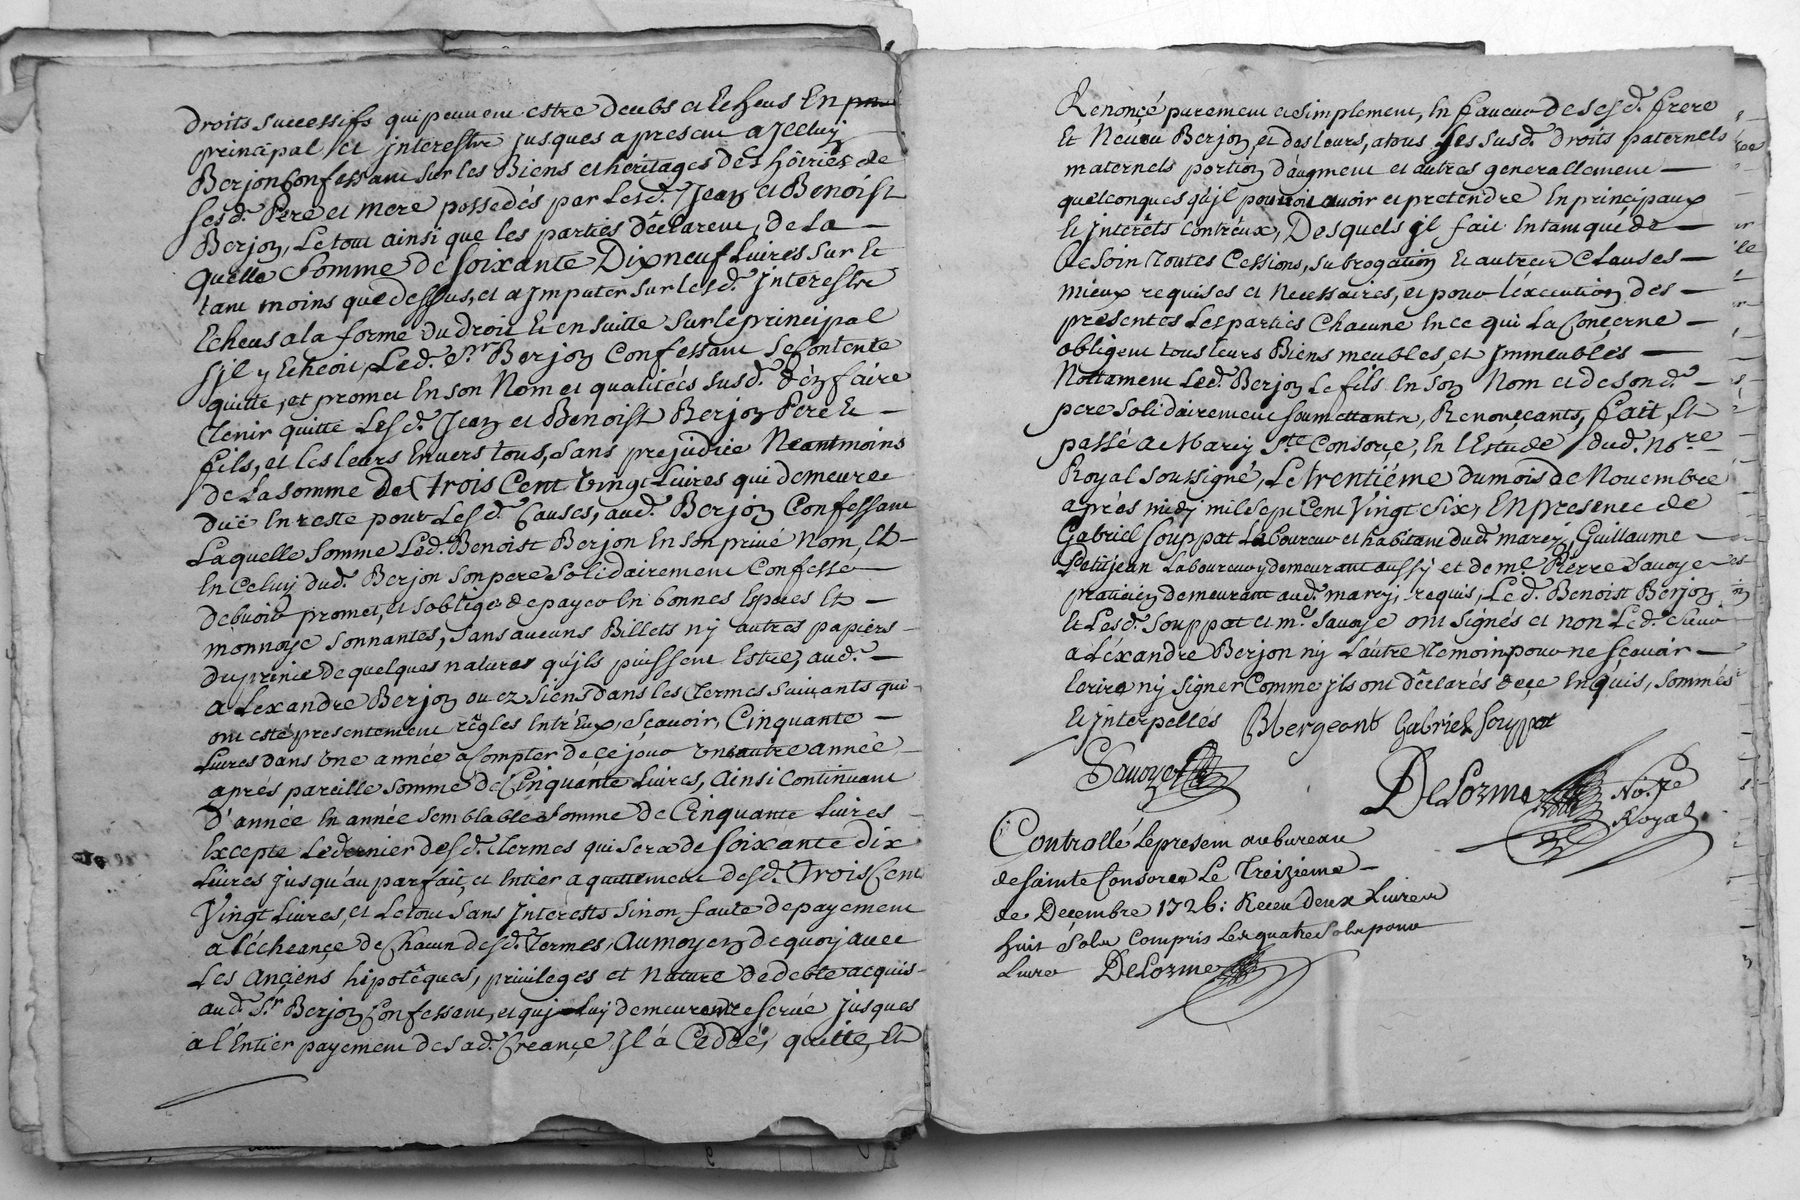 droits successifs qui peuvent estre deubs et Echeus En
principal et interestz jusques a present a Jceluy
Berjon Confessant sur les Biens et heritages des hôiriës de
sesd. Pere et mere possedés par Lesd. Jean et Benoist
Berjon, Le tout ainsi que les parties déclarent, de La
quelle Somme de soixante Dixneuf Livres sur Et
tant moins que dessus, et a Jmputer sur lesd. Interestz
Echeus a la forme du droit Et en suitte sur le principal
s'il y Echeoit, Led. Sr. Berjon Confessant se Contente
quitte, et promet En son Nom et qualitées susd. d'en faire
Tenir quitte Lesd. Jean et Benoist Berjon Pere Et
fils, et les leurs Envers tous, sans prejudice Neantmoins
de La somme de Trois Cent Vingt Livres qui demeure
duë En reste pour Lesd. Causes, aud. Berjon Confessant
Laquelle somme Led. Benoist Berjon En son privé Nom, Et
En Celuy dud. Berjon son pere solidairement Confesse
debvoir promet, et s'oblige de payer En bonnes Especes Et
monnoye sonnantes, sans aucuns Billets ny autres papiers
du prince de quelques natures qu'jls puissent Estre, aud.
alexandre Berjon ou ez siens dans les Termes suivants qui
ont esté presentement règles Entr'Eux, scavoir, Cinquante
Livres dans une année a Compter de ce jour une autre année
aprés pareille somme de Cinquante Livres, ainsi Continuant
d'année En année semblable somme de Cinquante Livres
Excepté Le dernier desd. Termes qui sera de soixante dix
Livres jusqu'au parfait, et Entier aquittement desd. Trois Cent
Vingt Livres, et Le tout sans Interests sinon faute de payement
a l'écheançe de Chacun desd. Termes, au moyen de quoy avec
Les Anciens hipotêques, privileges et Nature de debte acquis
aud. Sr. Berjon Confessant, et qui Luy demeurent reservée Jusques
a l'Entier payement de sad. Creançe Jl á Ceddé, quitté, Et
Renonçé purement et simplement, En faveur de sesd. frere
Et Neveu Berjon, et des leurs, a tous Les susd. droits paternels
maternels portion d'augment et autres generallement
quelconques qu'jl pouvoit avoir et pretendre En principaux
Et Interêts Contr'eux, Desquels jl fait En tant que de
besoin Toutes Cessions, subrogation Et autres Clauses
mieux requises et Necessaires, et pour l'éxecution des
presentes Les parties Chacune En ce qui La Concerne
obligent tous leurs Biens meubles, et Jmmeubles
Nottament Led. Berjon Le fils En son Nom et de sond.
pere solidairement soumettants, Renonçants, fait, Et
passé a Marcy Ste. Consorçe, En l'Estude dud. Nore.
Royal soussigné, Le trentiéme du mois de Novembre
aprés midy mil sept Cent Vingt Six, En presence de
Gabriel Souppat Laboureur et habitant dud. marcy, Guillaume
Petitjean Laboureur y demeurant aussy et de me. Pierre Savoye
praticien demeurant aud. marcy, requis, Led. Benoist Berjon
Et Lesd. Souppat et me. Savoye ont signés et non Led. Sieur
aléxandre Berjon ny L'autre Temoin pour ne sçavoir
Ecrire ny signer Comme jls ont déclarés de ce Enquis, Sommés
Et jnterpellés Bbergeont Gabriel Souppat
Savoye
DeLorme No.re
Royal
Controllé Le present au bureau
de Sainte Consorce Le Treizieme
de Decembre 1726: Receu deux Livres
huit sols Compris Les quatre sols pour
Livre DeLorme